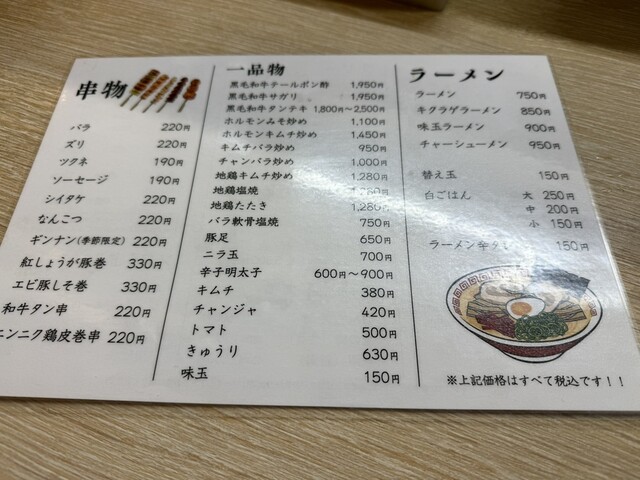 串物
バラ 220円
ズリ 220円
ツクネ 190円
ソーセージ 190円
シイタケ 220円
なんこつ 220円
ギンナン(季節限定) 220円
紅しょうが豚巻 330円
エビ豚しそ巻 330円
和牛タン串 220円
ンニク鶏皮巻串 220円
一品物
黒毛和牛テールポン酢 1,950円
黒毛和牛サガリ 1,950円
黒毛和牛タンテキ 1,800円〜2,500円
ホルモンみそ炒め 1,100円
ホルモンキムチ炒め 1,450円
キムチバラ炒め 950円
チャンバラ炒め 1,000円
地鶏キムチ炒め 1,280円
地鶏塩焼
地鶏たたき 1,280円
バラ軟骨塩焼 750円
豚足 650円
ニラ玉 700円
辛子明太子 600円〜900円
キムチ 380円
チャンジャ 420円
トマト 500円
きゅうり 630円
味玉 150円
ラーメン
ラーメン 750円
キクラゲラーメン 850円
味玉ラーメン 900円
チャーシューメン 950円
替え玉 150円
白ごはん 大 250円
中 200円
小 150円
ラーメン辛ダレ 150円
※上記価格はすべて税込です！！